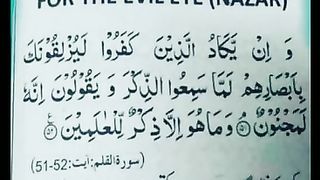 FOR THE EVIL EYE (NAZAR)
وَ اِنْ يَّكَادُ الَّذِيْنَ كَفَرُوْا لَيُزْلِقُوْنَكَ
بِاَبْصَارِهِمْ لَمَّا سَمِعُوا الذِّكْرَ وَ يَقُوْلُوْنَ اِنَّهٗ
لَمَجْنُوْنٌ ۵۱ وَمَا هُوَ اِلَّا ذِكْرٌ لِّلْعٰلَمِيْنَ ۵۲
(سورة القلم: آیت: 52-51)